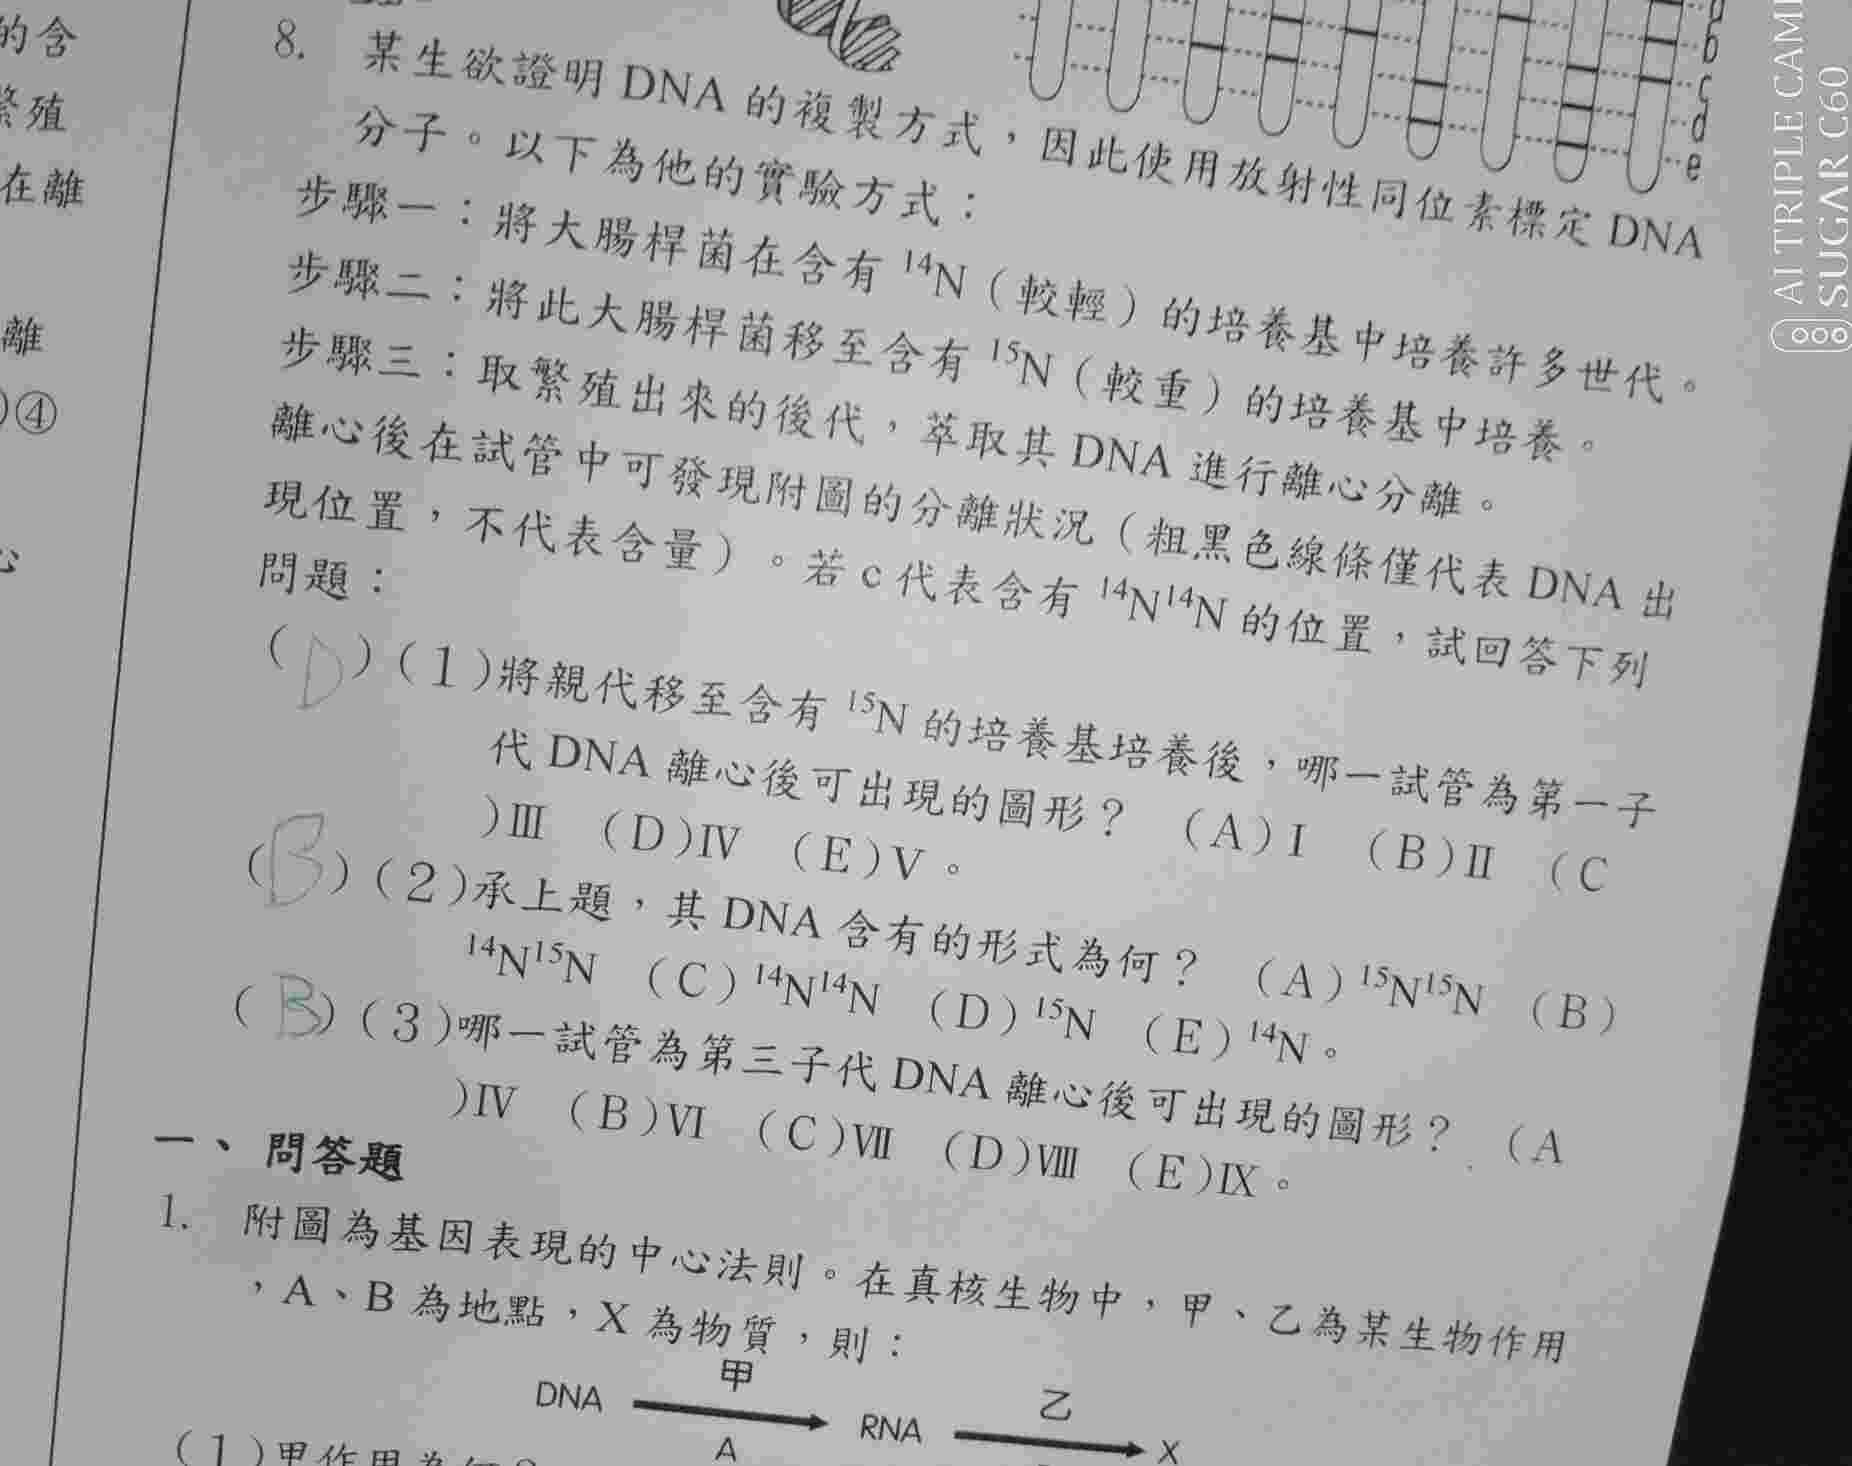 的含
繁殖
在離
離
)④
心
b
c
d
e
8. 某生欲證明 DNA 的複製方式，因此使用放射性同位素標定 DNA
分子。以下為他的實驗方式：
步驟一：將大腸桿菌在含有 ¹⁴N（較輕）的培養基中培養許多世代。
步驟二：將此大腸桿菌移至含有 ¹⁵N（較重）的培養基中培養。
步驟三：取繁殖出來的後代，萃取其 DNA 進行離心分離。
離心後在試管中可發現附圖的分離狀況（粗黑色線條僅代表 DNA 出
現位置，不代表含量）。若 c 代表含有 ¹⁴N¹⁴N 的位置，試回答下列
問題：
( D )(1)將親代移至含有 ¹⁵N 的培養基培養後，哪一試管為第一子
代 DNA 離心後可出現的圖形？ (A)Ⅰ (B)Ⅱ (C
)Ⅲ (D)Ⅳ (E)Ⅴ。
( B )(2)承上題，其 DNA 含有的形式為何？ (A)¹⁵N¹⁵N (B)
¹⁴N¹⁵N (C)¹⁴N¹⁴N (D)¹⁵N (E)¹⁴N。
( B )(3)哪一試管為第三子代 DNA 離心後可出現的圖形？ (A
)Ⅳ (B)Ⅵ (C)Ⅶ (D)Ⅷ (E)Ⅸ。
一、問答題
1. 附圖為基因表現的中心法則。在真核生物中，甲、乙為某生物作用
，A、B 為地點，X 為物質，則：
DNA 甲 RNA 乙 X
A
(1)甲作用為何？
AI TRIPLE CAM
SUGAR C60